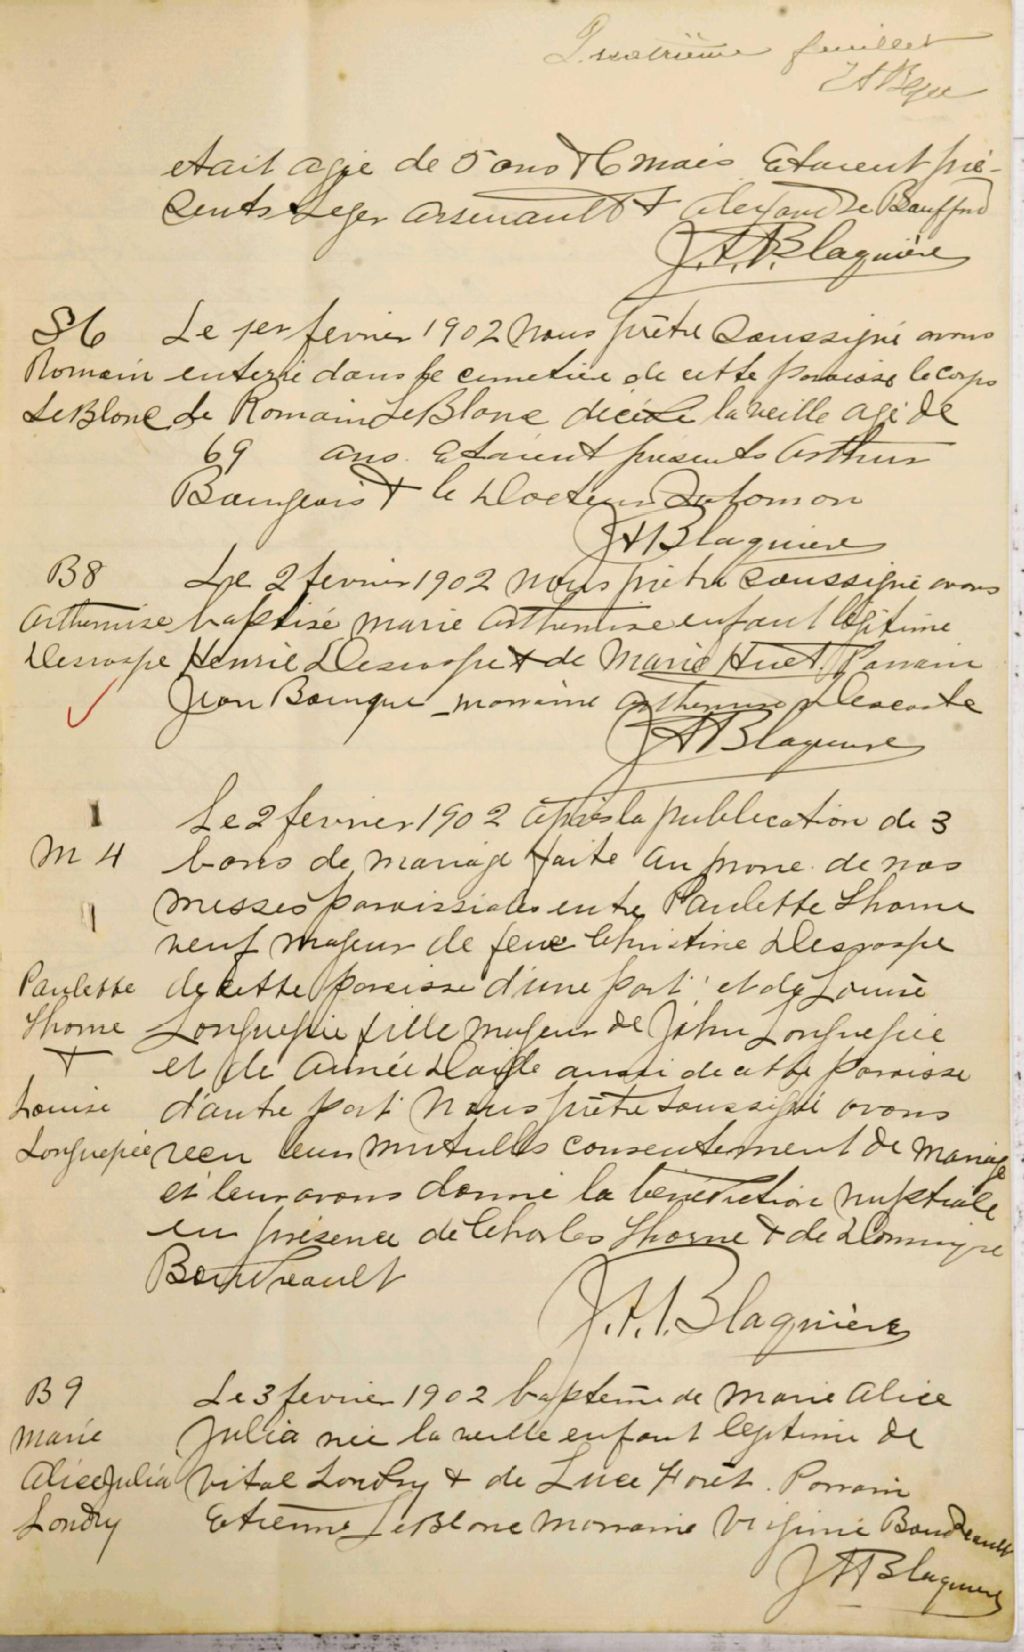 feuillet
etait agée de 5 ans & 6 mois. Etaient pré-
sents Leger Arsenault & Alexandre Bouffard
J.A.P. Blaquière
S6 Le 1er fevrier 1902 nous prêtre soussigné avons
Romain enterré dans le cimetière de cette paroisse le corps
LeBlanc de Romain LeBlanc décédé la veille agé de
69 ans. Etaient présents Arthur
Bourgeois & le Docteur Solomon
JABlaquiere
B8 Le 2 fevrier 1902 nous prêtre soussigné avons
Arthemise baptisé Marie Arthemise enfant légitime
Desrospe Henrie Desrospe & de Marie Huet. Parrain
Jean Bourque marraine Arthemise
JABlaquiere
Le 2 fevrier 1902 après la publication de 3
M 4 bans de mariage faite au prone de nos
messes paroissiales entre Paulette Thorne
veuf majeur de feue Christine Desrospe
Paulette de cette paroisse d'une part et de Louise
Thorne Longuepée fille majeur de John Longuepée
& et de Aimée ausi de cette paroisse
Louise d'autre part Nous prêtre soussigné avons
Longuepée recu leur mutuelles consentement de mariage
et leur avons donné la bénédiction nuptiale
en présence de Charles Thorne & de Dominique
Boudreault
J.A.P. Blaquière
B9 Le 3 fevrier 1902 baptême de Marie Alice
Marie Julia née la veille enfant legitime de
Alice Julia Vital Landry & de Luce Forêt. Parrain
Landry Etienne LeBlanc marraine Virginie Boudreault
JABlaquiere